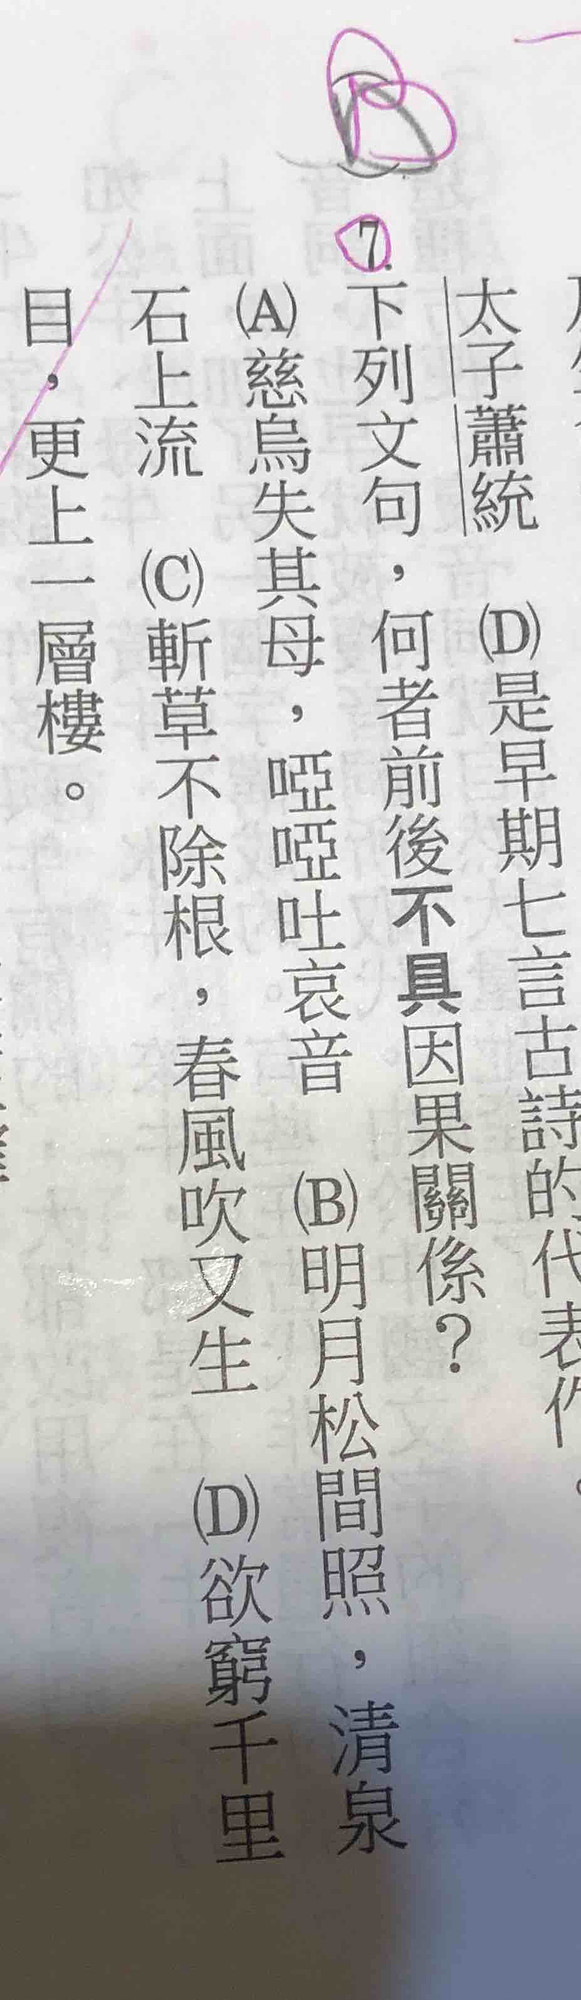 太子蕭統　(D)是早期七言古詩的代表作。
7.下列文句，何者前後不具因果關係？
(A)慈烏失其母，啞啞吐哀音　(B)明月松間照，清泉
石上流　(C)斬草不除根，春風吹又生　(D)欲窮千里
目，更上一層樓。